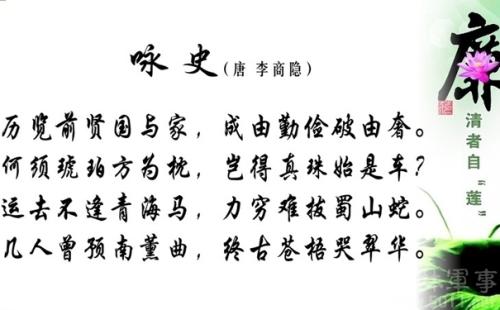 咏史(唐 李商隐)
历览前贤国与家，成由勤俭破由奢。
何须琥珀方为枕，岂得真珠始是车?
运去不逢青海马，力穷难拔蜀山蛇。
几人曾预南薰曲，终古苍梧哭翠华。
廉
清者自“莲”
軍事